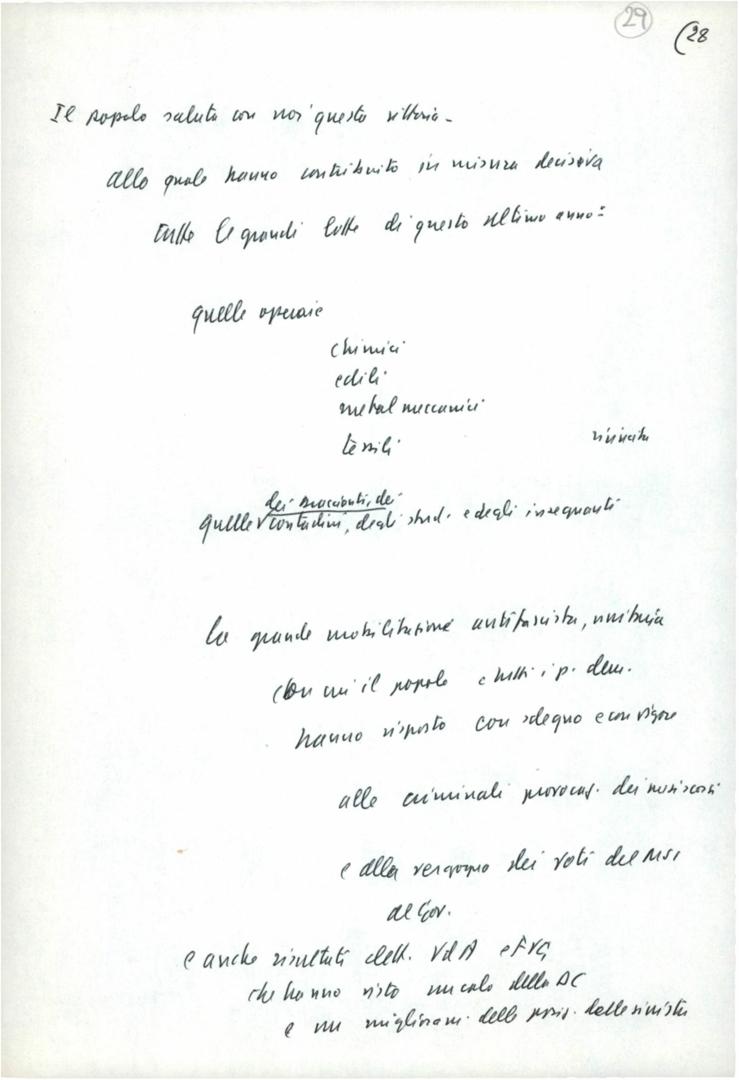 29 (28
Il popolo saluta con noi questa vittoria -
alla quale hanno contribuito in misura decisiva
tutte le grandi lotte di questo ultimo anno:
quelle operaie
chimici
edili
metalmeccanici
tessili
dei braccianti, dei
quelle contadini, degli stud. e degli insegnanti
la grande mobilitazione antifascista, unitaria
con cui il popolo e tutti i p. dem.
hanno risposto con sdegno e con vigore
alle criminali provocaz. dei missini
e alla vergogna dei voti del MSI
al Gov.
e anche risultati dell. VdA e FVG
che hanno visto un calo della DC
e un miglioram. delle posiz. delle sinistre